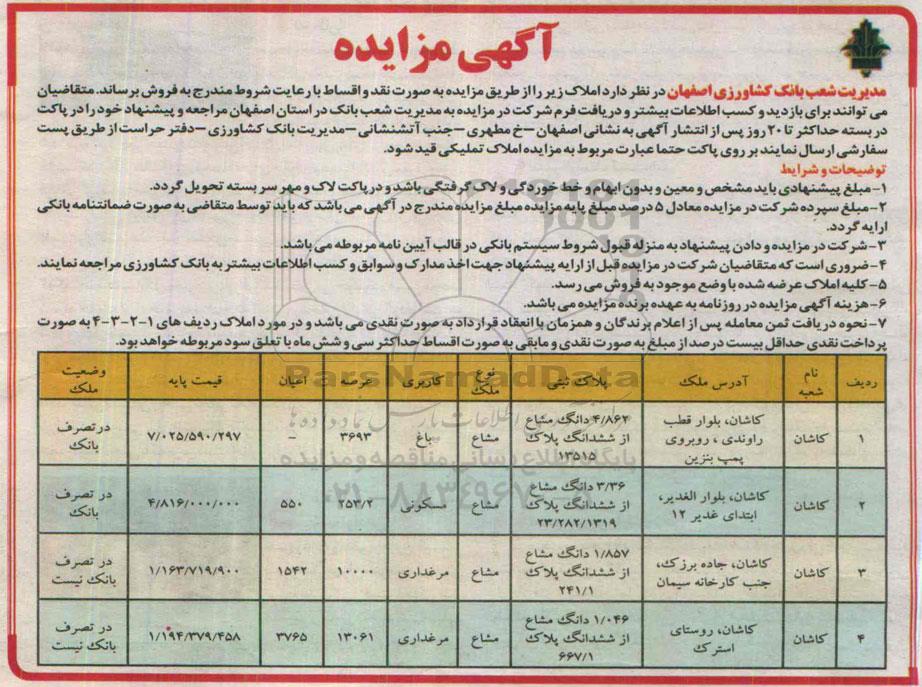 آگهی مزایده
مدیریت شعب بانک کشاورزی اصفهان در نظر دارد املاک زیر را از طریق مزایده به صورت نقد و اقساط با رعایت شروط مندرج به فروش برساند. متقاضیان
می توانند برای بازدید و کسب اطلاعات بیشتر و دریافت فرم شرکت در مزایده به مدیریت شعب بانک در استان اصفهان مراجعه و پیشنهاد خود را در پاکت
در بسته حداکثر تا ۲۰ روز پس از انتشار آگهی به نشانی اصفهان –خ مطهری –جنب آتشنشانی –مدیریت بانک کشاورزی –دفتر حراست از طریق پست
سفارشی ارسال نمایند بر روی پاکت حتما عبارت مربوط به مزایده املاک تملیکی قید شود.
توضیحات و شرایط
۱–مبلغ پیشنهادی باید مشخص و معین و بدون ابهام و خط خوردگی و لاک گرفتگی باشد و در پاکت لاک و مهر سر بسته تحویل گردد.
۲–مبلغ سپرده شرکت در مزایده معادل ۵ درصد مبلغ پایه مزایده مبلغ مزایده مندرج در آگهی می باشد که باید توسط متقاضی به صورت ضمانتنامه بانکی
ارایه گردد.
۳–شرکت در مزایده و دادن پیشنهاد به منزله قبول شروط سیستم بانکی در قالب آیین نامه مربوطه می باشد.
۴–ضروری است که متقاضیان شرکت در مزایده قبل از ارایه پیشنهاد جهت اخذ مدارک و سوابق و کسب اطلاعات بیشتر به بانک کشاورزی مراجعه نمایند.
۵–کلیه املاک عرضه شده با وضع موجود به فروش می رسد.
۶–هزینه آگهی مزایده در روزنامه به عهده برنده مزایده می باشد.
۷– نحوه دریافت ثمن معامله پس از اعلام برندگان و همزمان با انعقاد قرارداد به صورت نقدی می باشد و در مورد املاک ردیف های ۱–۲–۳–۴ به صورت
پرداخت نقدی حداقل بیست درصد از مبلغ به صورت نقدی و مابقی به صورت اقساط حداکثر سی و شش ماه با تعلق سود مربوطه خواهد بود.
ردیف نام شعبه آدرس ملک پلاک ثبتی نوع ملک کاربری عرصه اعیان قیمت پایه وضعیت ملک
۱ کاشان کاشان، بلوار قطب راوندی ، روبروی پمپ بنزین ۴/۸۶۲ دانگ مشاع از ششدانگ پلاک ۱۳۵۱۵ مشاع باغ ۳۶۹۳ – ۷/۰۲۵/۵۹۰/۲۹۷ در تصرف بانک
۲ کاشان کاشان، بلوار الغدیر، ابتدای غدیر ۱۲ ۳/۳۶ دانگ مشاع از ششدانگ پلاک ۲۳/۲۸۲/۱۳۱۹ مشاع مسکونی ۲۵۳/۲ ۵۵۰ ۴/۸۱۶/۰۰۰/۰۰۰ در تصرف بانک
۳ کاشان کاشان، جاده برزک، جنب کارخانه سیمان ۱/۸۵۷ دانگ مشاع از ششدانگ پلاک ۲۴۱/۱ مشاع مرغداری ۱۰۰۰۰ ۱۵۴۲ ۱/۱۶۳/۷۱۹/۹۰۰ در تصرف بانک نیست
۴ کاشان کاشان، روستای استرک ۱/۰۴۶ دانگ مشاع از ششدانگ پلاک ۶۶۷/۱ مشاع مرغداری ۱۳۰۶۱ ۳۷۶۵ ۱/۱۹۴/۳۷۹/۴۵۸ در تصرف بانک نیست
ParsNamadData
پایگاه اطلاع رسانی مناقصه و مزایده